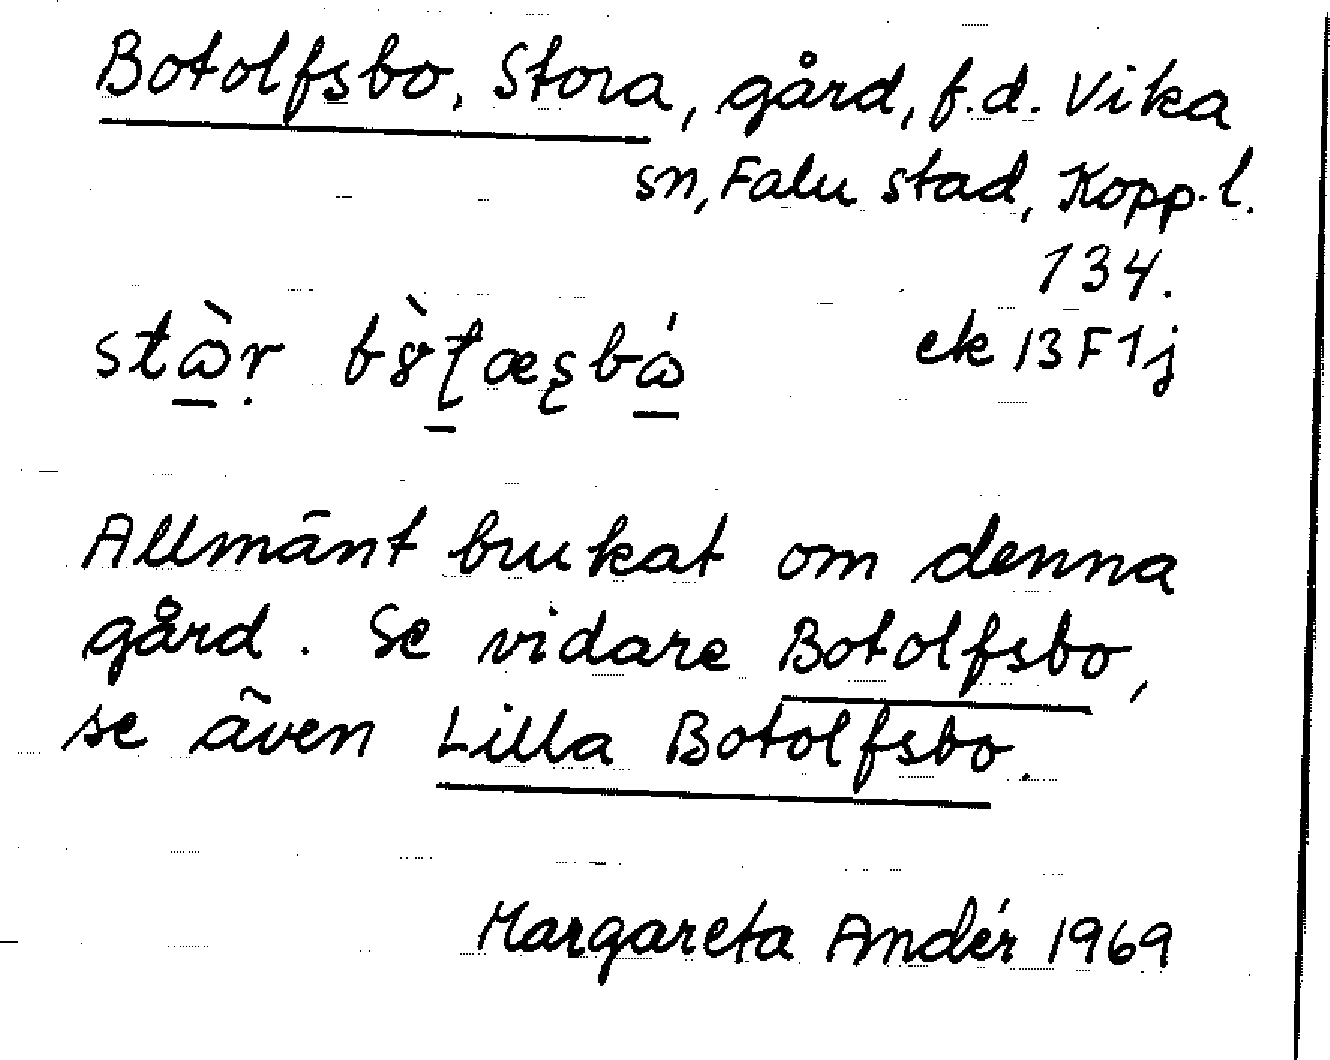 Botolfsbo, Stora, gård, f.d. Vika
sn, Falu stad, Kopp. l.
134.
ek 13F1j
Allmänt brukat om denna
gård. Se vidare Botolfsbo,
se även Lilla Botolfsbo.
Margareta Andér 1969